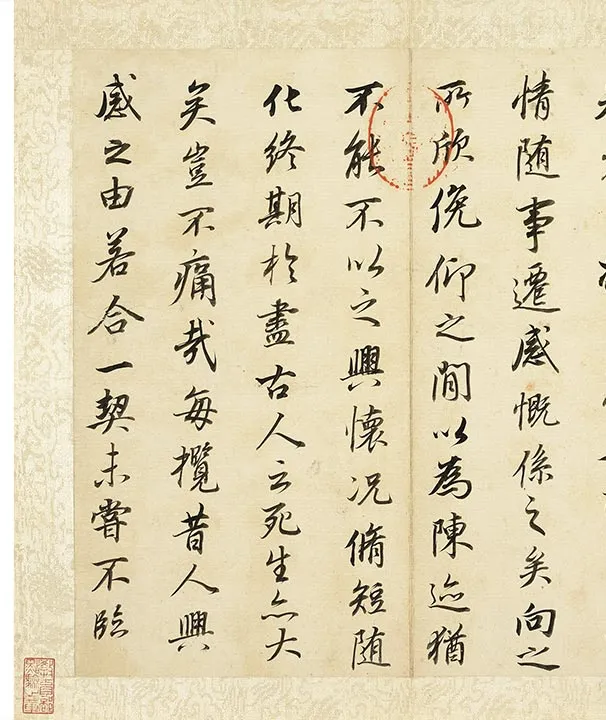 情随事遷感慨係之矣向之
所欣俛仰之間以為陳迹猶
不能不以之興懷况脩短随
化終期於盡古人云死生亦大
矣豈不痛哉每攬昔人興
感之由若合一契未嘗不臨